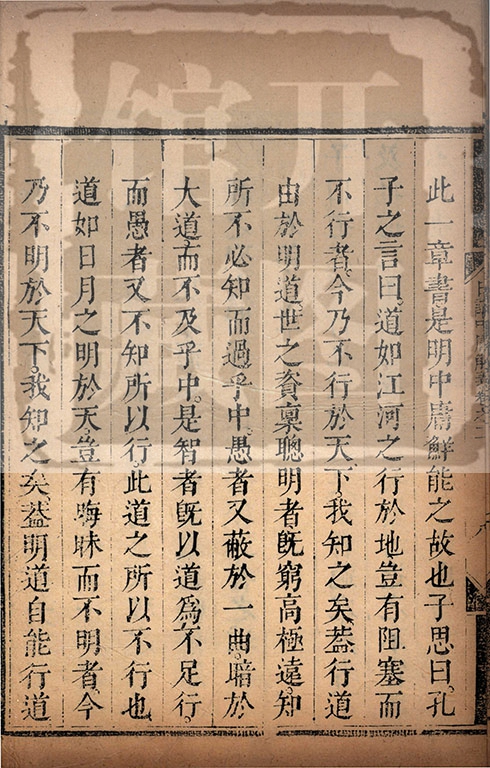 此一章書是明中庸鮮能之故也子思曰。孔
子之言曰。道如江河之行於地豈有阻塞而
不行者。今乃不行於天下。我知之矣。葢行道
由於明道。世之資稟聰明者既窮高極遠。知
所不必知而過乎中。愚者又蔽於一曲。暗於
大道。而不及乎中。是智者既以道為不足行。
而愚者又不知所以行。此道之所以不行也
道如日月之明於天豈有晦昧而不明者。今
乃不明於天下。我知之矣葢明道自能行道